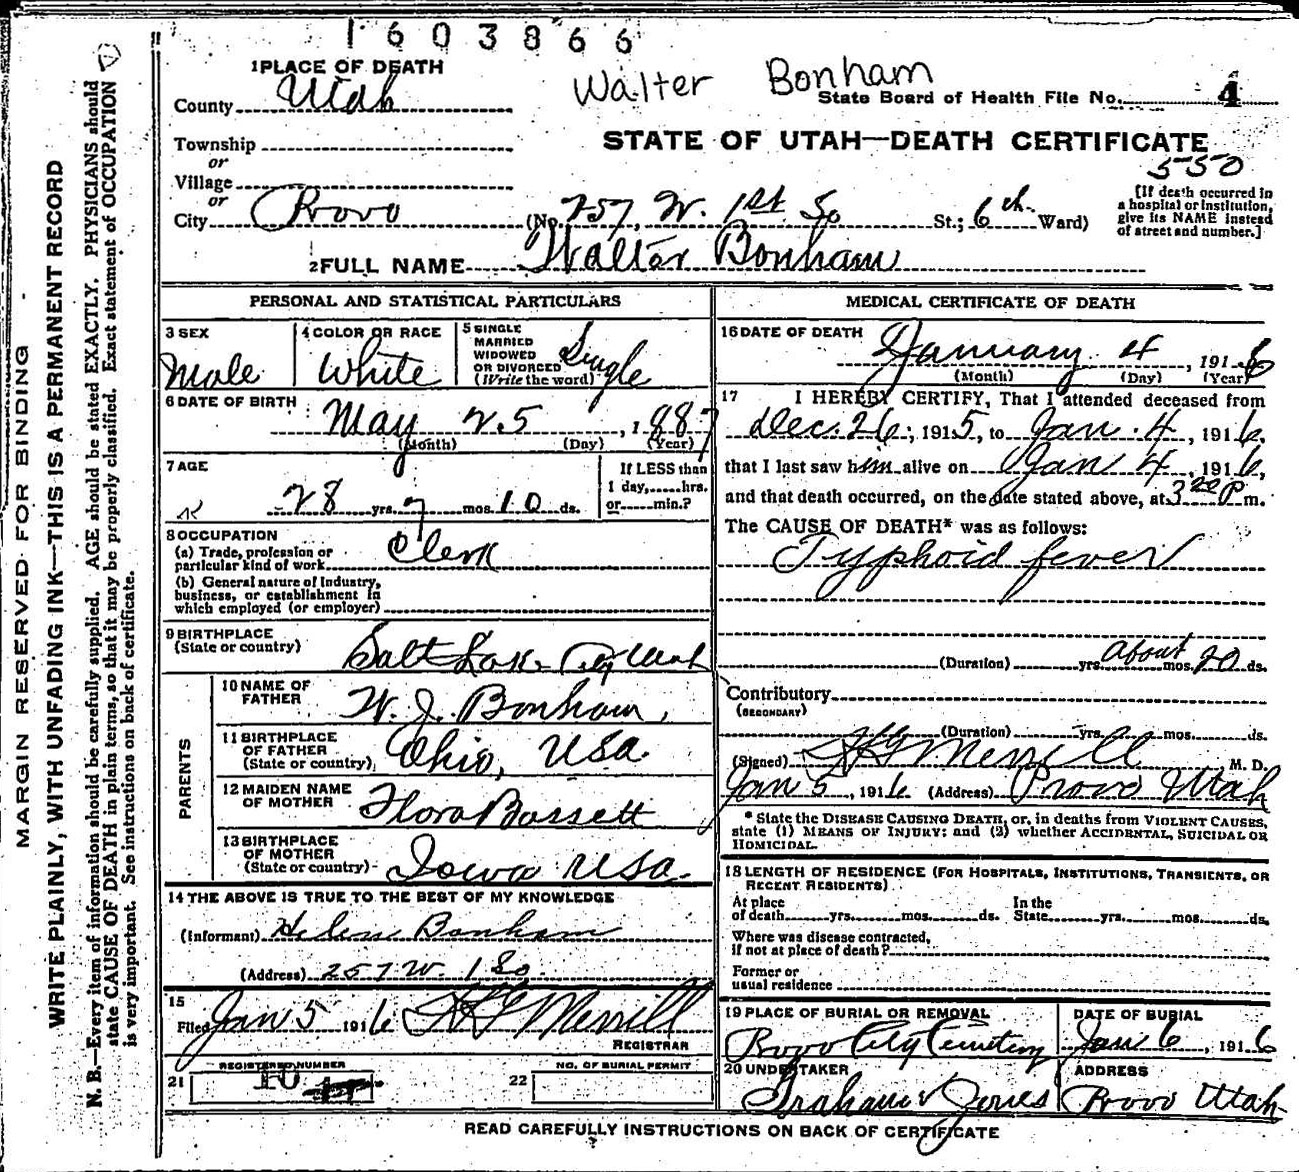 1603866
1 PLACE OF DEATH
Walter Bonham
County Utah
State Board of Health File No. 4
Township
STATE OF UTAH—DEATH CERTIFICATE
or
550
Village
or
City Provo (No. 257, W. 1st So St.; 6th Ward)
[If death occurred in
a hospital or institution,
give its NAME instead
of street and number.]
2 FULL NAME Walter Bonham
PERSONAL AND STATISTICAL PARTICULARS
3 SEX
Male
4 COLOR OR RACE
White
5 SINGLE
MARRIED
WIDOWED
OR DIVORCED
(Write the word) Single
6 DATE OF BIRTH
May 25, 1887
(Month) (Day) (Year)
7 AGE
28 yrs. 7 mos. 10 ds.
If LESS than
1 day,......hrs.
or......min.?
8 OCCUPATION
(a) Trade, profession or
particular kind of work Clerk
(b) General nature of Industry,
business, or establishment in
which employed (or employer)
9 BIRTHPLACE
(State or country) Salt Lake City Utah
PARENTS
10 NAME OF
FATHER W. J. Bonham,
11 BIRTHPLACE
OF FATHER
(State or country) Ohio, USA.
12 MAIDEN NAME
OF MOTHER Flora Bassett
13 BIRTHPLACE
OF MOTHER
(State or country) Iowa USA.
14 THE ABOVE IS TRUE TO THE BEST OF MY KNOWLEDGE
(Informant) Helen Bonham
(Address) 257 W. 1 So.
15
Filed Jan 5 1916 Merrill
REGISTRAR
REGISTERED NUMBER
21 10
NO. OF BURIAL PERMIT
22
MEDICAL CERTIFICATE OF DEATH
16 DATE OF DEATH
January 4, 1916
(Month) (Day) (Year)
17 I HEREBY CERTIFY, That I attended deceased from
Dec. 26, 1915, to Jan. 4, 1916,
that I last saw him alive on Jan 4, 1916,
and that death occurred, on the date stated above, at 3 20 P m.
The CAUSE OF DEATH* was as follows:
Typhoid fever
(Duration) yrs. about mos. 20 ds.
Contributory
(SECONDARY)
(Duration) yrs. mos. ds.
(Signed) Merrill, M. D.
Jan 5, 1916 (Address) Provo Utah
* State the DISEASE CAUSING DEATH, or, in deaths from VIOLENT CAUSES,
state (1) MEANS OF INJURY; and (2) whether ACCIDENTAL, SUICIDAL OR
HOMICIDAL.
18 LENGTH OF RESIDENCE (FOR HOSPITALS, INSTITUTIONS, TRANSIENTS, OR
RECENT RESIDENTS)
At place
of death yrs. mos. ds.
In the
State yrs. mos. ds.
Where was disease contracted,
if not at place of death?
Former or
usual residence
19 PLACE OF BURIAL OR REMOVAL
Provo City Cemetery
DATE OF BURIAL
Jan 6, 1916
20 UNDERTAKER
Graham & Jones
ADDRESS
Provo Utah
READ CAREFULLY INSTRUCTIONS ON BACK OF CERTIFICATE
MARGIN RESERVED FOR BINDING
WRITE PLAINLY, WITH UNFADING INK—THIS IS A PERMANENT RECORD
N. B.—Every item of information should be carefully supplied. AGE should be stated EXACTLY. PHYSICIANS should
state CAUSE OF DEATH in plain terms, so that it may be properly classified. Exact statement of OCCUPATION
is very important. See instructions on back of certificate.